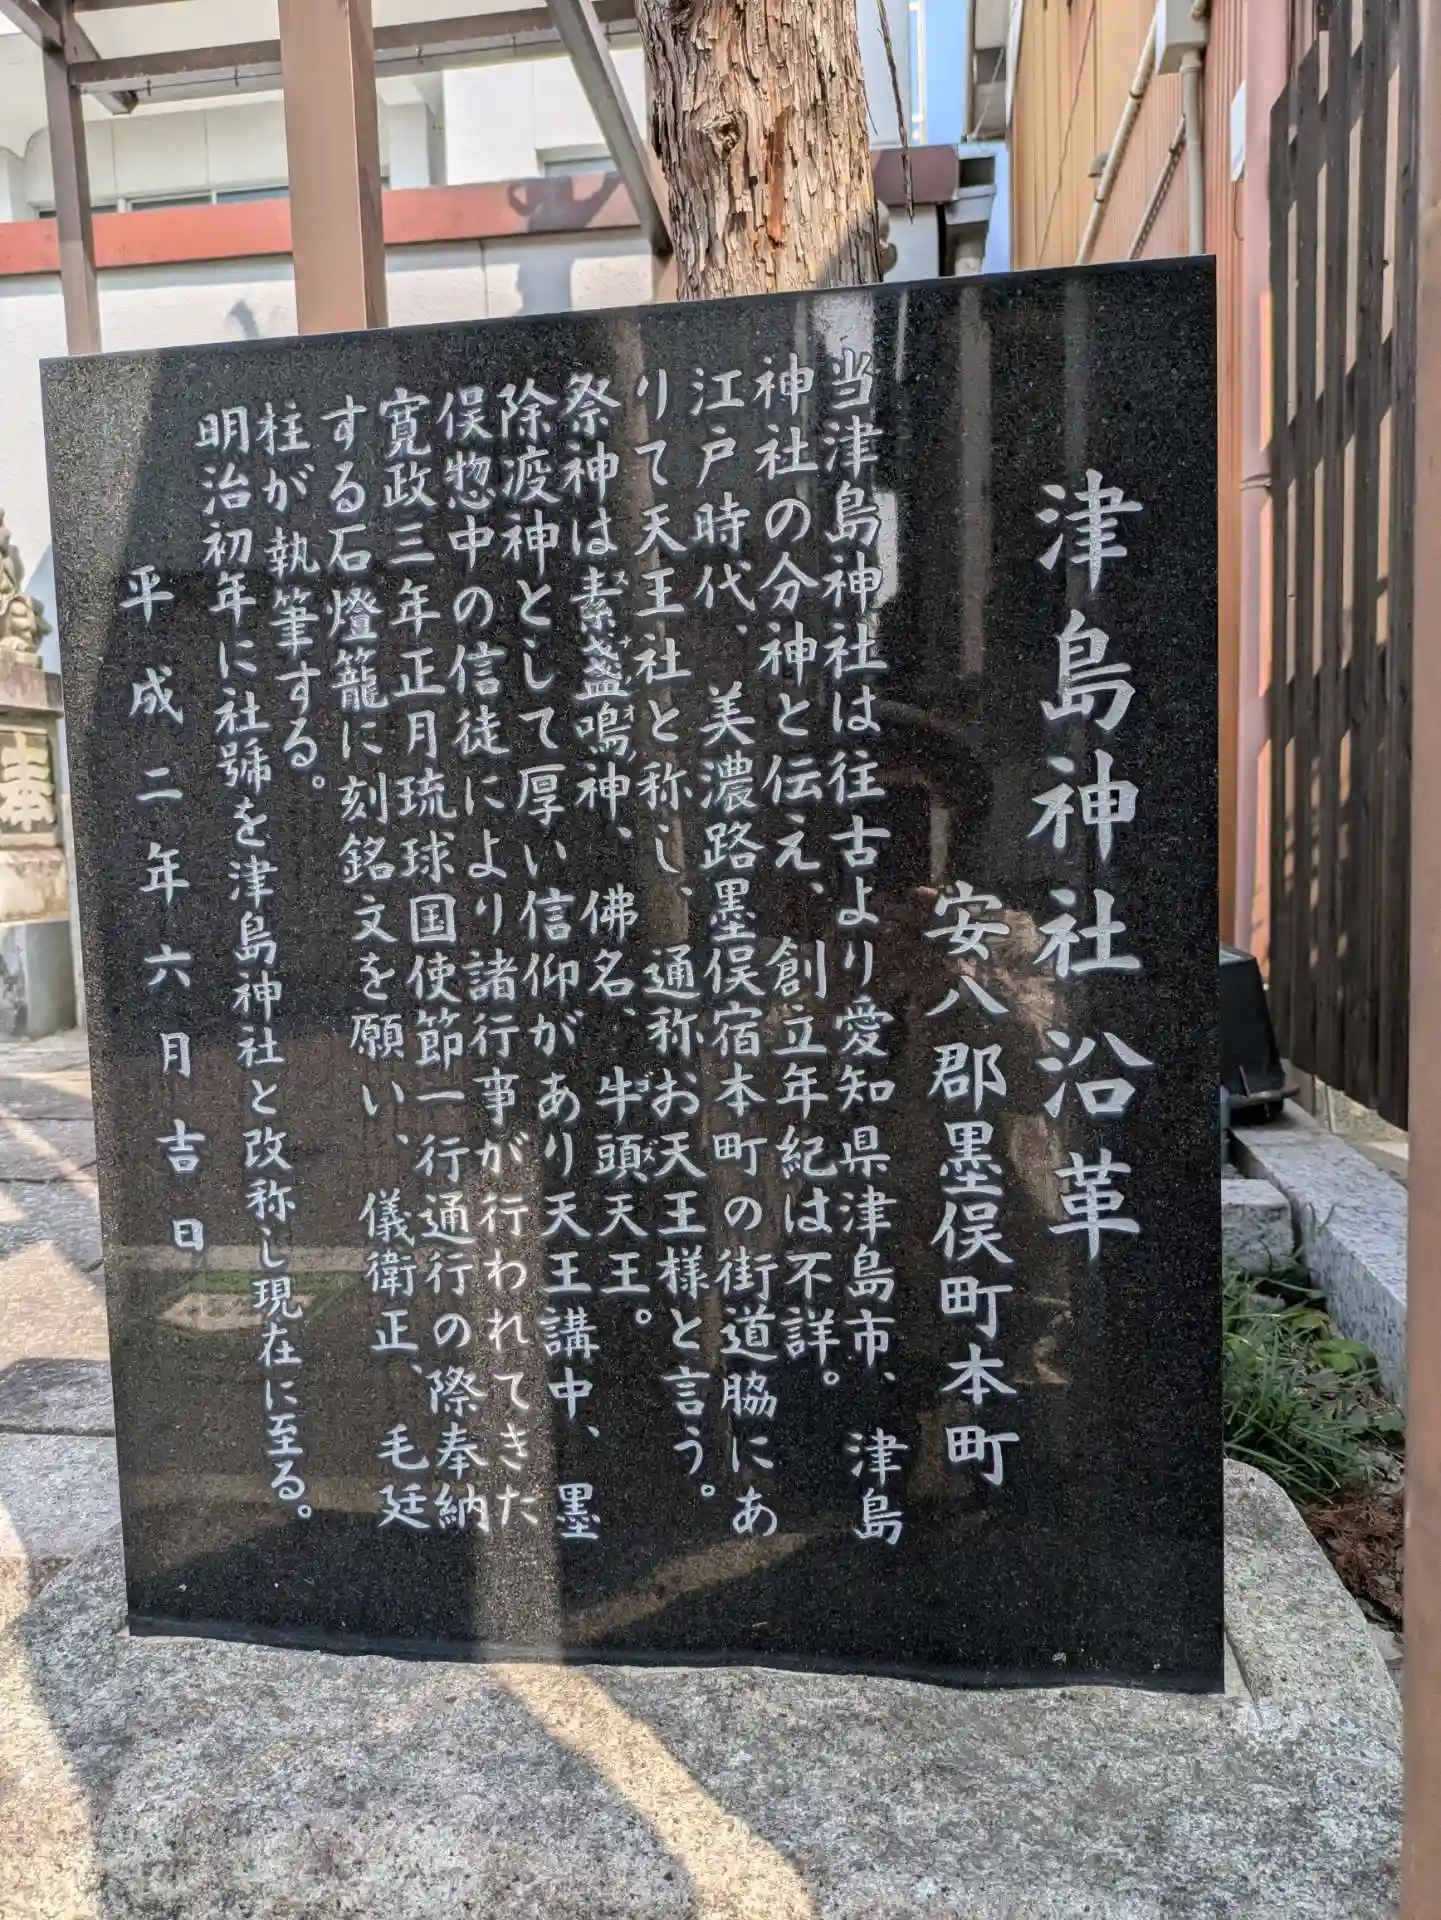 津島神社沿革
安八郡墨俣町本町
当津島神社は往古より愛知県津島市、津島
神社の分神と伝え、創立年紀は不詳。
江戸時代、美濃路墨俣宿本町の街道脇にあ
りて天王社と称し、通称お天王様と言う。
祭神は素盞嗚神、佛名、牛頭天王。
スサノオ
ゴズ
除疫神として厚い信仰があり天王講中、墨
俣惣中の信徒により諸行事が行われてきた
寛政三年正月琉球国使節一行通行の際奉納
する石燈籠に刻銘文を願い、儀衛正、毛廷
柱が執筆する。
明治初年に社號を津島神社と改称し現在に至る。
平成二年六月吉日
奉